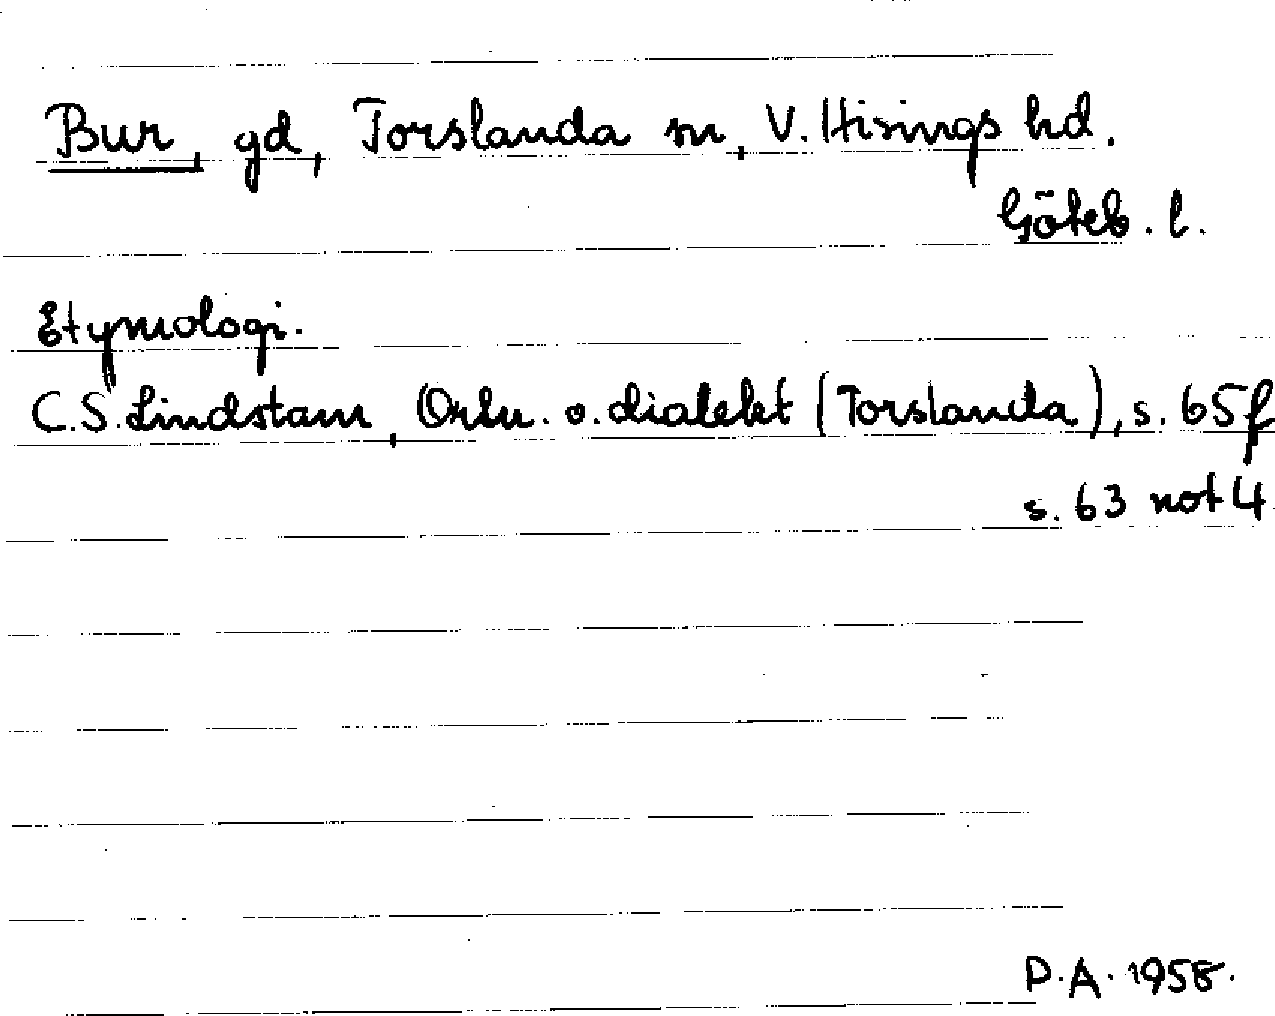 Bur, gd, Torslanda sn, V. Hisings hd.
Göteb. l.
Etymologi.
C.S. Lindstam, Ortn. o. dialekt (Torslanda), s. 65f
s. 63 not 4
D.A. 1958.